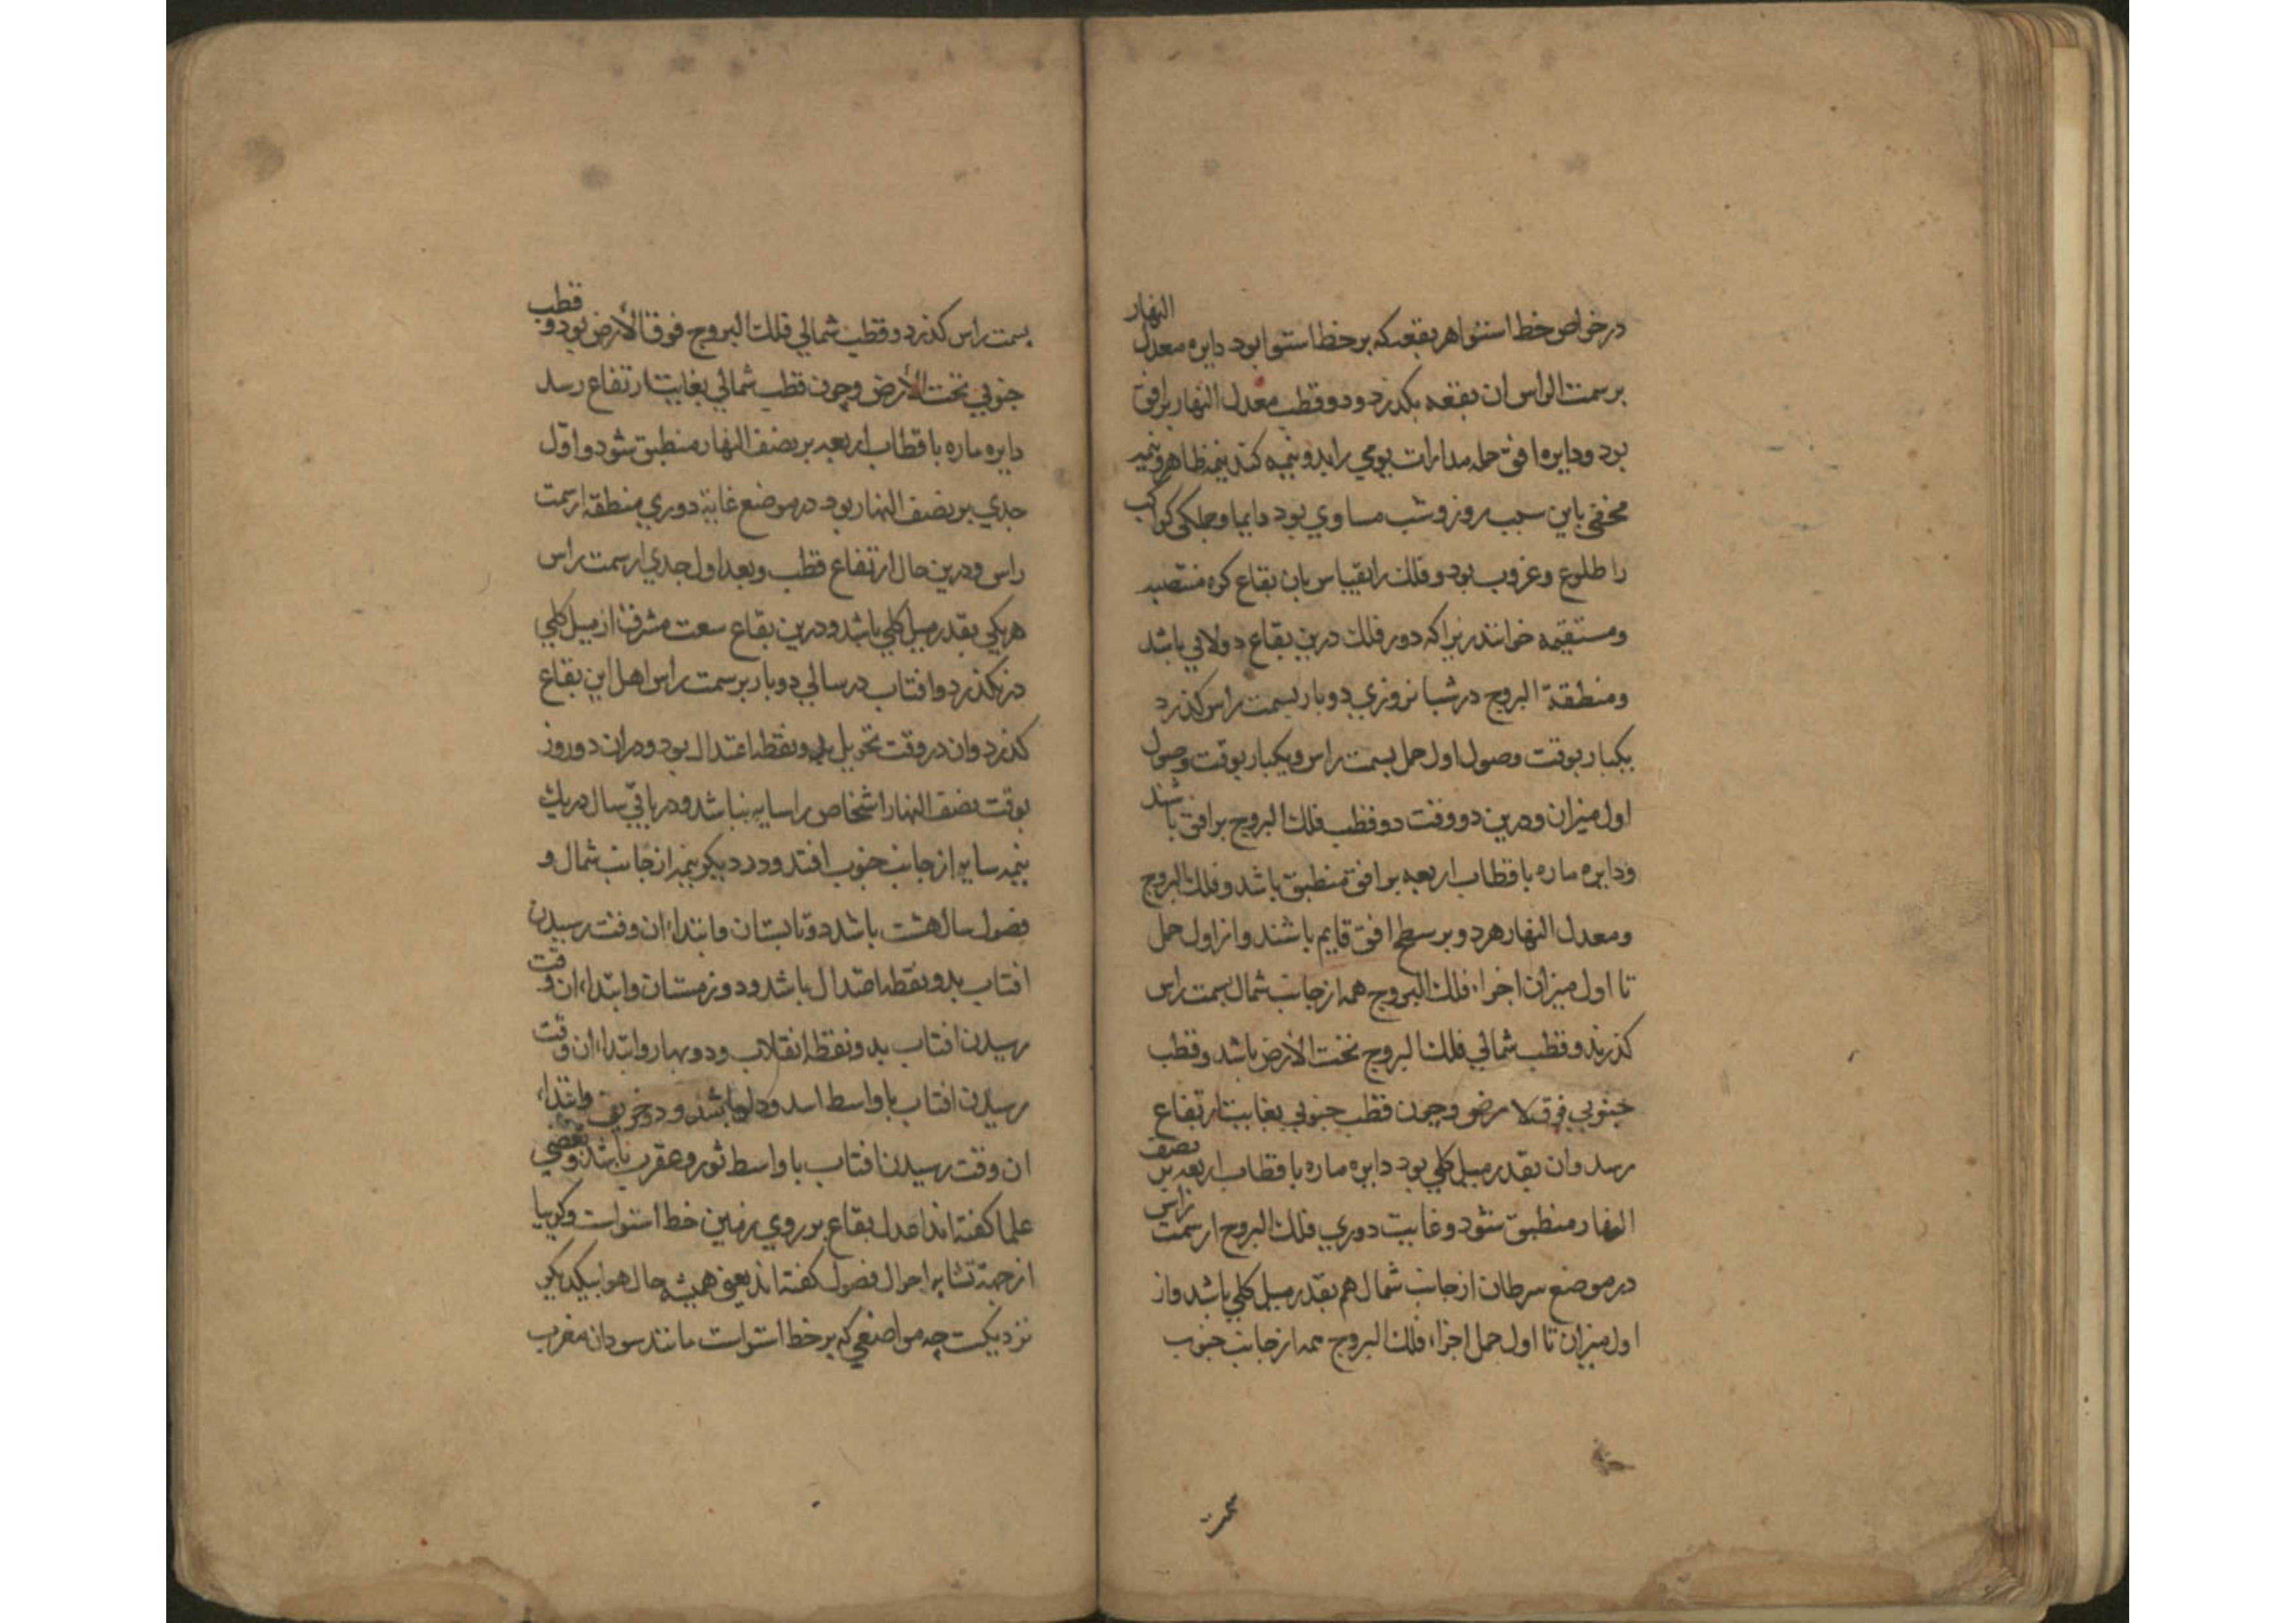 در خواص خط استوا هر بقعه كه بر خط استوا بود دايره معدل النهار
بر سمت الراس ان بقعه بكذرد ودو قطب معدل النهار بر افق
بود ودايره افق جمله مدارات يومي را بدو نيمه كند نيمه ظاهر ونيمه
مخفي باين سبب روز وشب مساوي بود دايما وجملكي كواكب
را طلوع وغروب بود وفلك را بقياس بان بقاع كره منتصبه
ومستقيمه خوانند زيرا كه دور فلك درين بقاع دولابي باشد
ومنطقة البروج در شبانروزي دوبار بسمت راس كذرد
يكبار بوقت وصول اول حمل بسمت راس ويكبار بوقت وصول
اول ميزان ودرين دو وقت دو قطب فلك البروج بر افق باشند
ودايره ماره باقطاب اربعه بر افق منطبق باشد وفلك البروج
ومعدل النهار هر دو بر سطح افق قايم باشند واز اول حمل
تا اول ميزان اجزاء فلك البروج همه از جانب شمال بسمت راس
كذرند وقطب شمالي فلك البروج تحت الأرض باشد وقطب
جنوبي فوق لارض وچون قطب جنوبي بغايت ارتفاع
رسد وان بقدر ميل كلي بود دايره ماره باقطاب اربعه بر نصف
النهار منطبق شود وغايت دوري فلك البروج از سمت راس
در موضع سرطان از جانب شمال هم بقدر ميل كلي باشد واز
اول ميزان تا اول حمل اجزاء فلك البروج همه از جانب جنوب
بسمت راس كذرد وقطب شمالي فلك البروج فوق الأرض بود وقطب
جنوبي تحت الأرض وچون قطب شمالي بغايت ارتفاع رسد
دايره ماره باقطاب اربعه بر نصف النهار منطبق شود واوّل
جدي بر نصف النهار بود در موضع غاية دوري منطقه از سمت
راس ودرين حال ارتفاع قطب وبعد اول جدي از سمت راس
هر يكي بقدر ميل كلي باشد ودرين بقاع سعت مشرق از ميل كلي
در نكذرد وافتاب در سالي دوبار بر سمت راس اهل اين بقاع
كذرد وان در وقت تحويل بدو نقطه اعتدال بود ودران دو روز
بوقت نصف النهار اشخاص را سايه نباشد ودر باقي سال دريك
نيمه سايه از جانب جنوب افتد ودر ديكر نيمه از جانب شمال و
فصول سال هشت باشد دو تابستان وابتداء ان وقت رسيدن
افتاب بدو نقطه اعتدال باشد ودو زمستان وابتداء ان وقت
رسيدن افتاب بدو نقطه انقلاب ودو بهار وابتداء ان وقت
رسيدن افتاب باواسط اسد ودلو باشد ودو خريف وابتداء
ان وقت رسيدن افتاب باواسط ثور وعقرب باشد وبعضي
علما كفته اند اعدل بقاع بر روي زمين خط استواست وكويا
از جهة تشابه احوال فصول كفته اند يعني هميشه حال هوا بيكديكر
نزديكست چه مواضعي كه بر خط استواست مانند سودان مغرب